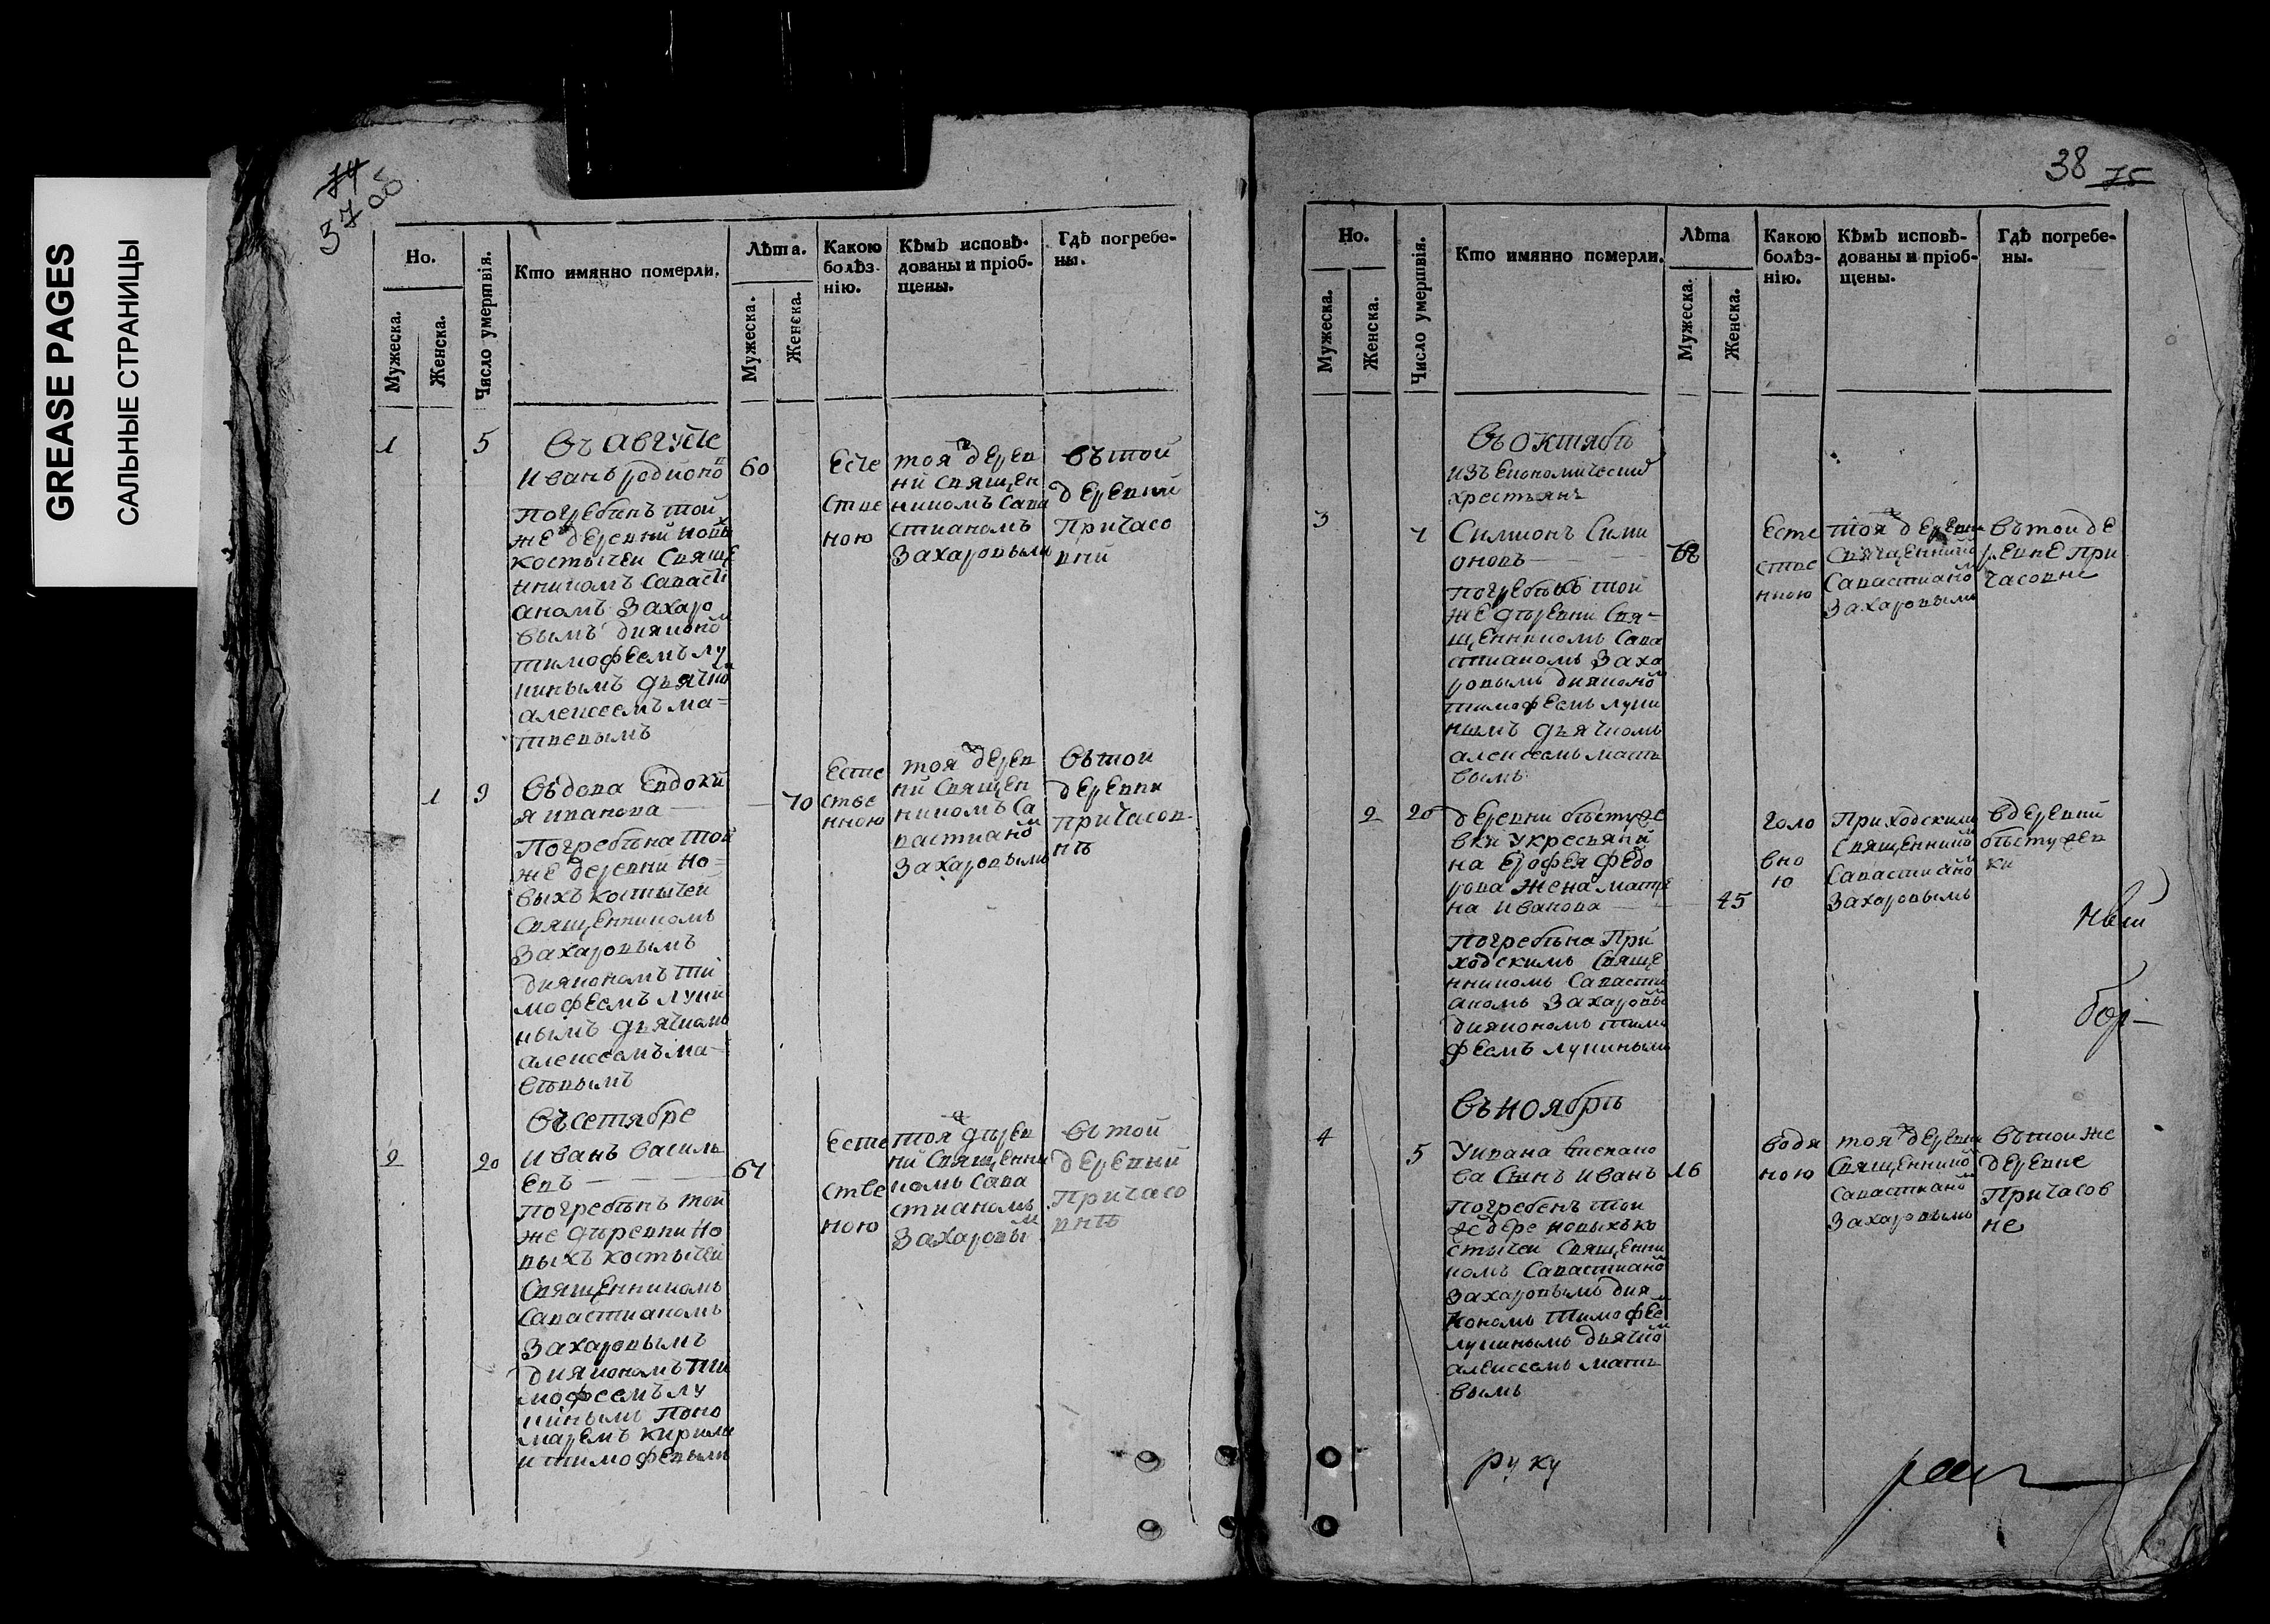 GREASE PAGES
САЛЬНЫЕ СТРАНИЦЫ
74
37 об
Но.
Мужеска.
Женска.
Число умертвія.
Кто имянно померли.
Лѣта.
Мужеска.
Женска.
Какою
болѣз-
нію.
Кѣмъ исповѣ-
дованы и пріоб-
щены.
Гдѣ погребе-
ны.
1
5
въ августе
иванъ родионо
в
60
погребѣнъ той
же деревни новы
х
костычеи свяще
нникомъ Савасти
аномъ Захаро
вымъ дияконо
м
тимофеемъ лу
кинымъ дьячко
м
алексеемъ ма=
твевымъ
Есте
стве
ною
тоя ж дерев
ни священ
никомъ Сава
стианомъ
Захаровымъ
въ той
деревни
при часо
вни
1
9
въдова Евдоки
я иванова
70
погребѣна той
же деревни но=
выхъ костычей
священникомъ
Захаровымъ
диякономъ ти
мофеемъ луки
нымъ дьячкомъ
алексеемъ ма-
вѣвымъ
Есте
стве
нною
тоя ж дерев
ни священ
никомъ Са
вастиано
м
Захаровымъ
въ той
деревни
при часов
нѣ
въ сетябре
2
20
иванъ василь
евъ
67
погребѣнъ той
же дѣревни но
выхъ костычей
священникомъ
Савастианомъ
Захаровымъ
дияакономъ ти
мофеемъ лу
кинымъ поно
маремъ кирилм
и тимофевымъ
Есте
стве
ною
тоя ж дѣрев
ни священни
комъ Сава
стианомъ
Захаровы
м
въ той
деревни
при часо
внѣ
38 75
Но.
Мужеска.
Женска.
Число умершвія.
Кто имянно померли.
Лѣта
Мужеска.
Женска.
Какою
болѣз-
нію.
Кѣмъ исповѣ-
дованы и пріоб-
щены.
Гдѣ погребе-
ны.
въ октябѣ
изъ економически
х
крестьянъ
3
7
Симионъ Сими
оновъ
68
погребѣнъ той
же дѣревни свя=
щенникомъ Сава
стианомъ Заха
ровымъ дияконо
м
тимофеемъ луки
нымъ дьячкомъ
алексеемъ матв
вымъ
Есте
стве
нною
тоя ж деревни
священнико
м
Савастиано
м
Захаровымъ
въ той де
ревне при
часовне
2
20
деревни бѣстуже
вки у кресьяни
на ерофея федо
рова жена матре
на иванова
45
погребѣна при
ходскимъ свяще
нникомъ Савасти
аномъ Захаровы
м
дияакономъ тимо
феемъ лукинымъ
голо
вно
ю
приходскимъ
священнико
м
Савастиано
м
Захаровымъ
в деревни
бѣстужев
ки
бор-
въ ноябрѣ
4
5
ва сынъ иванъ
16
погребенъ той
же дере новыхъ ко
стычеи священни
комъ Савастиано
м
Захаровымъ дия
кономъ тимофее
м
лукинымъ дьячко
м
алексеемъ матв
вымъ
водя
ною
тоя ж деревни
священнико
м
Савастиано
м
Захаровымъ
въ той же
деревне
при часов
не
руку